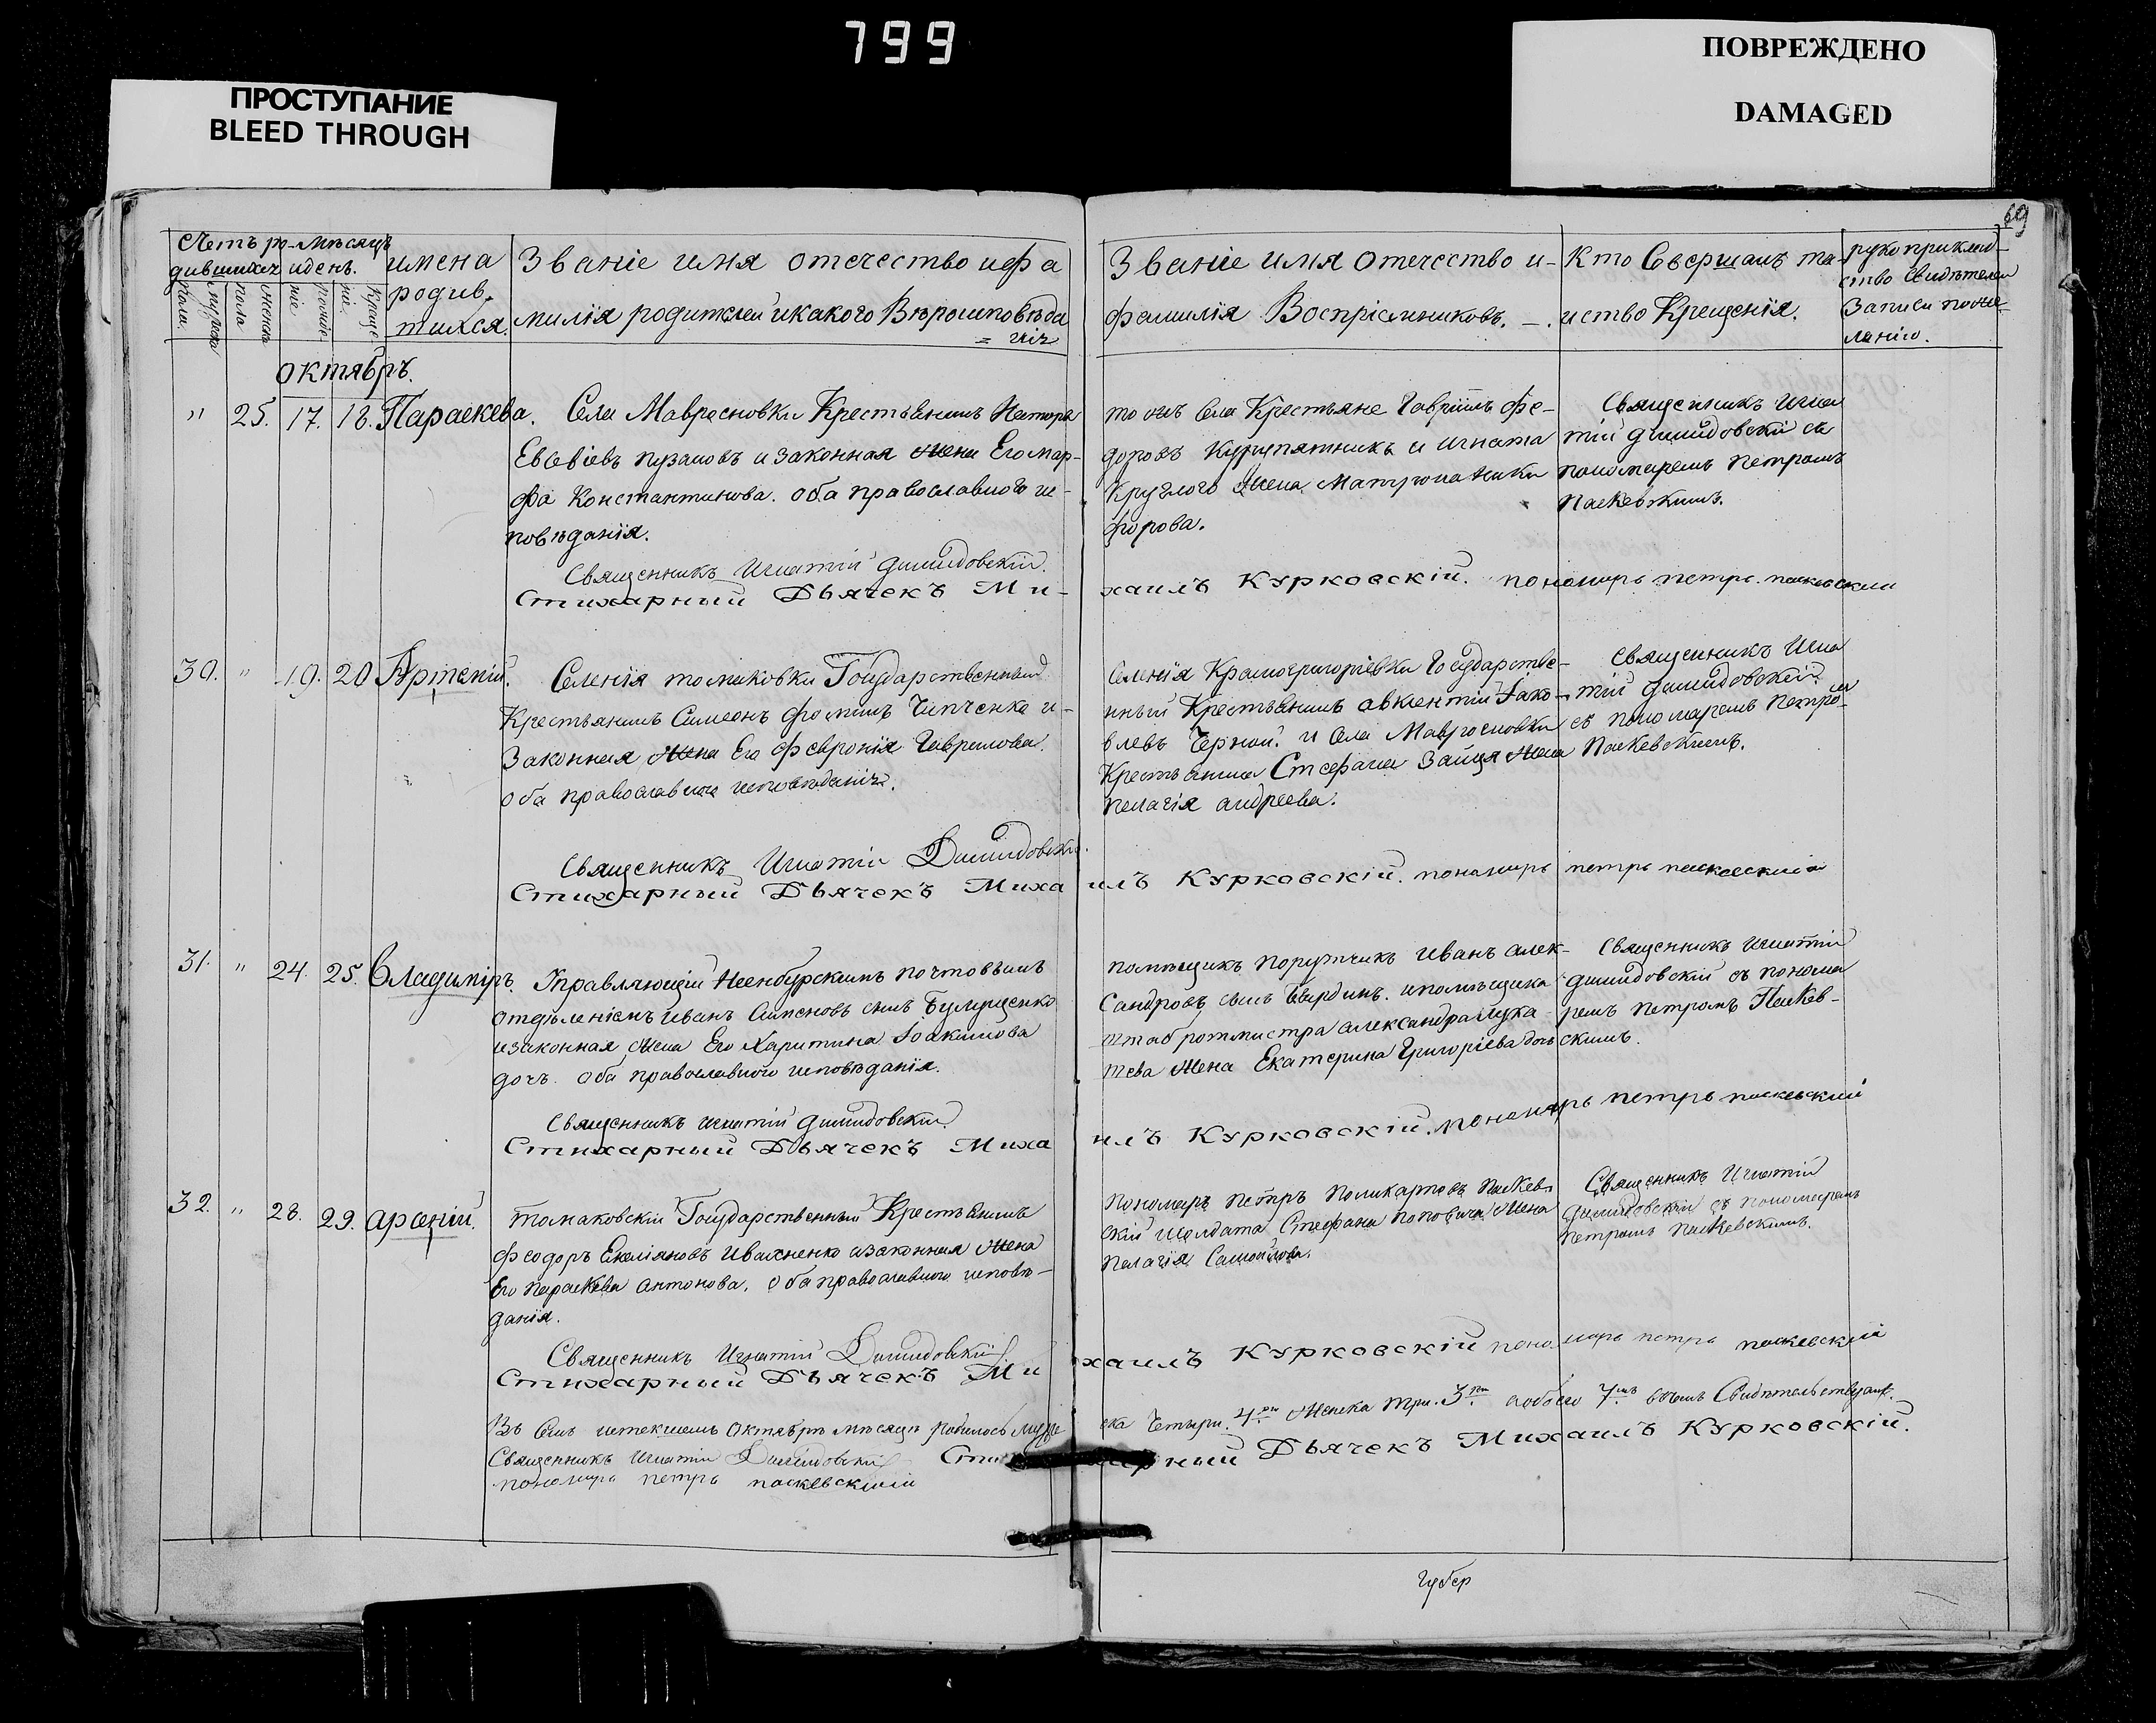 799
ПОВРЕЖДЕНО
DAMAGED
ПРОСТУПАНИЕ
BLEED THROUGH
69
Счетъ ро-
дившихся
мужска
пола.
женска
пола
Мѣсяцъ
и день.
рожде
нiе
креще
нiе.
имена
родив.
шихся.
Званiе имя отечество и фа
милiя родителей и какого Вѣроисповѣда
= нiя
Званiе имя отечество и-
фамилiя Воспрiемниковъ. —.
Кто Совершалъ та-
инство Крещенiя.
рукоприклад-
ство Свидѣтелей
Записи по же-
ланiю.
октябрь.
" 25. 17. 18. Параскева.
Села Мавроеновки Крестьянинъ
Евсевiевъ пузановъ и законная жена Его мар-
фа Константинова. оба православнаго ис-
повѣданiя.
тогожъ села Крестьяне Гаврiилъ Фе-
доровъ Курипятникъ и игната
Круглого жена Матрона Ники
форова.
Священникъ Игна
тiй демидовскiй съ
пономаремъ петромъ
паскевскимъ.
Священникъ Игнатiй демидовскiй.
Стихарный Дьячекъ Ми-
хаилъ Курковскiй. пономарь петръ паскевскiй
30. " 19. 20 Артемiй.
Селенiя томаковки Государственный
Крестьянинъ Симеонъ Фоминъ Чипченко и-
Законная жена Его Феvронiя Гаврилова.
оба православнаго исповѣданiя.
Селенiя Красногригорiевки Государстве-
нный Крестьянинъ авксентiй Iако-
влевъ Черной. и села Мавроеновки
Крестьянина Стефана Зайця жена
пелагiя андреева.
Священникъ Игна
тiй демидовскiй
съ пономаремъ Петром
Паскевскимъ.
Священникъ Игнатiй Демидовскiй.
Стихарный Дьячекъ Миха
илъ Курковскiй. пономарь петръ паскевскiй
31. " 24. 25. Владимiръ.
Управляющiй почтовымъ
отдѣленiемъ Иванъ сынъ Булищенко
и законная жена Его Харитина Iоакимова
дочь. оба православнаго исповѣданiя.
помѣщикъ порутчикъ Иванъ алек-
сандровъ сынъ и помѣщика
штаб ротмистра александра Лука-
шева жена Екатерина Григорiева дочь
Священникъ игнатiй
демидовскiй съ понома
ремъ петромъ Паскев-
скимъ.
Священникъ игнатiй демидовскiй
Стихарный Дьячекъ Миха
илъ Курковскiй. пономарь петръ паскевскiй
32. " 28. 29. арсенiй.
томаковскiй Государственный Крестьянинъ
Феодоръ Емелiяновъ Ивахненко и законная жена
Его параскева антонова. оба православнаго исповѣ-
данiя.
пономарь петръ поликарповъ паскев-
скiй и солдата Стефана поповича жена
пелагiя Самойлова.
Священникъ Игнатiй
демидовскiй съ пономаремъ
петромъ паскевскимъ.
Священникъ Игнатiй Демидовскiй
Стихарный Дьячекъ Ми
хаилъ Курковскiй пономарь петръ паскевскiй
Въ семъ истекшемъ октябрѣ мѣсяцѣ родилось муже
ска четыри. 4ри женска три. 3ри обоего 7мъ въ чемъ Свидѣтельствуютъ.
Священникъ Игнатiй Демидовскiй Стихарный Дьячекъ Михаилъ Курковскiй.
пономарь петръ паскевскiй
Губер